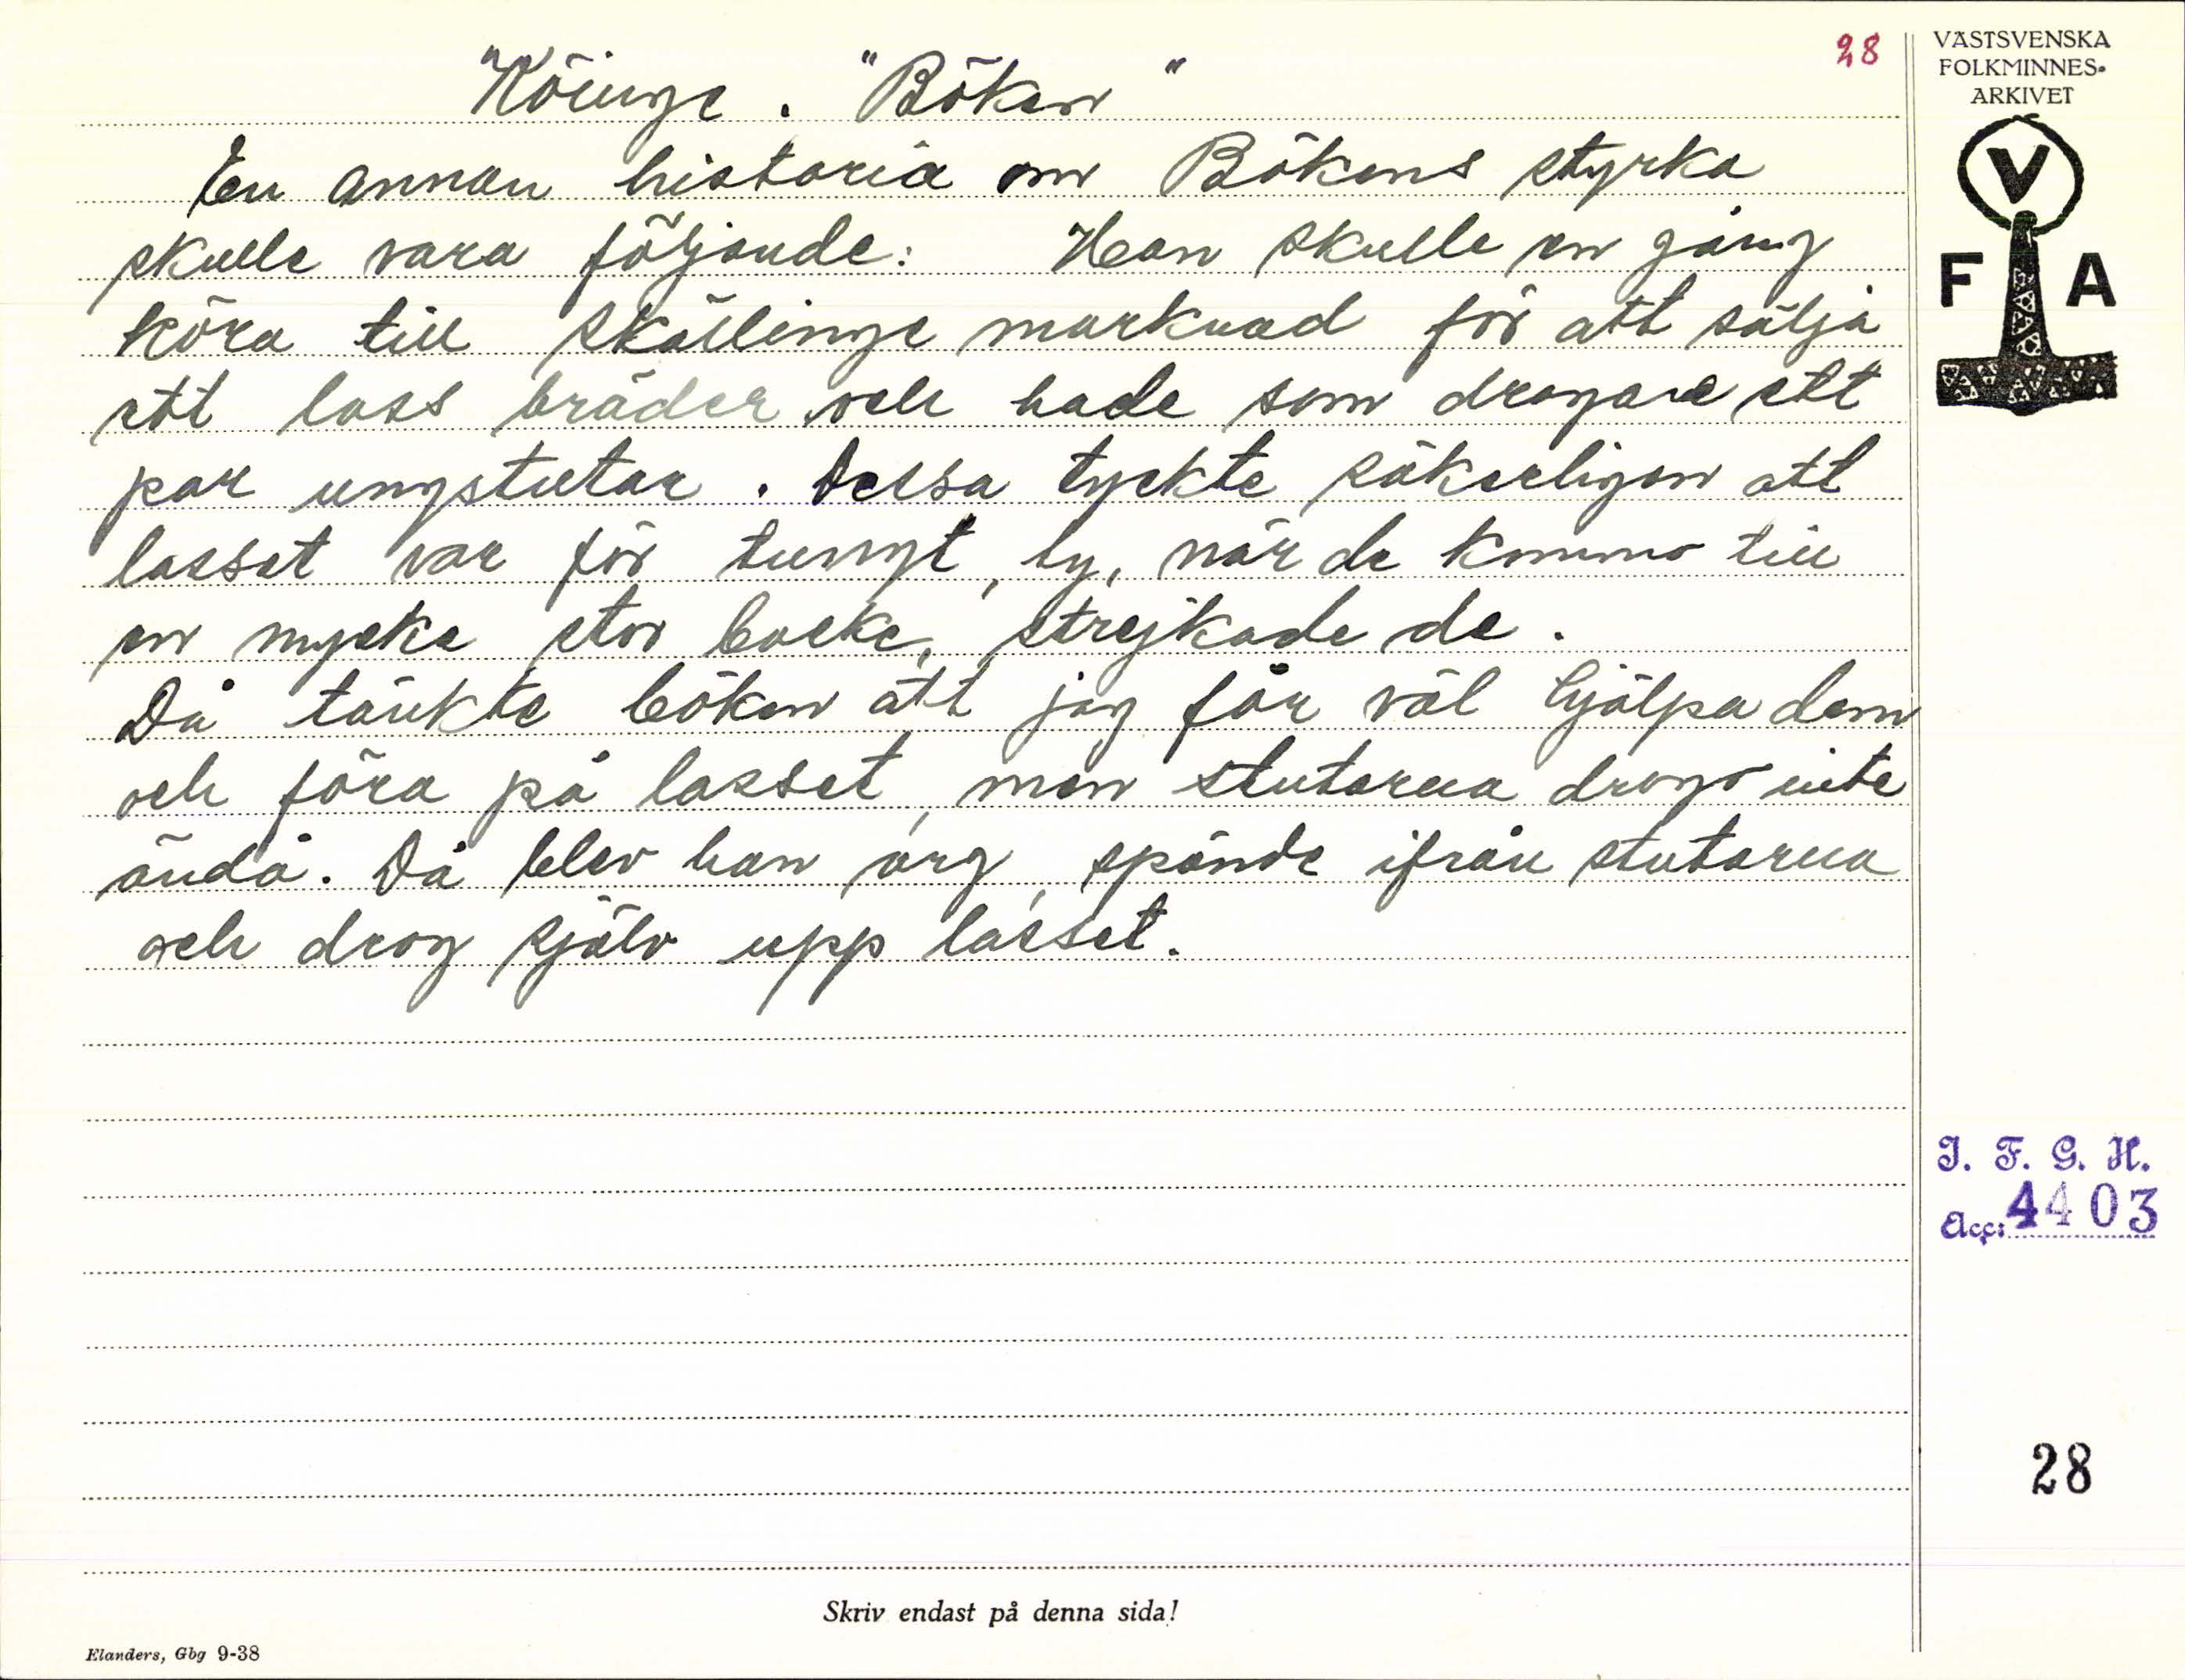 28
"Köinge. "Böken"
En annan historia om Bökens styrka
skulle vara följande: Han skulle en gång
köra till Skällinge marknad för att sälja
ett lass bräder och hade som dragare ett
par ungstutar. Dessa tyckte säkerligen att
lasset var för tungt, ty, när de kommo till
en mycke stor backe, strejkade de.
Då tänkte böken att jag får väl hjälpa dem
och föra på lasset, men stutarna drogo inte
ändå. Då blev han arg, spände ifrån stutarna
och drog själv upp lasset.
Skriv endast på denna sida!
Elanders, Gbg 9-38
VÄSTSVENSKA
FOLKMINNES-
ARKIVET
V
F A
I. F. G. H.
Acc: 4403
28